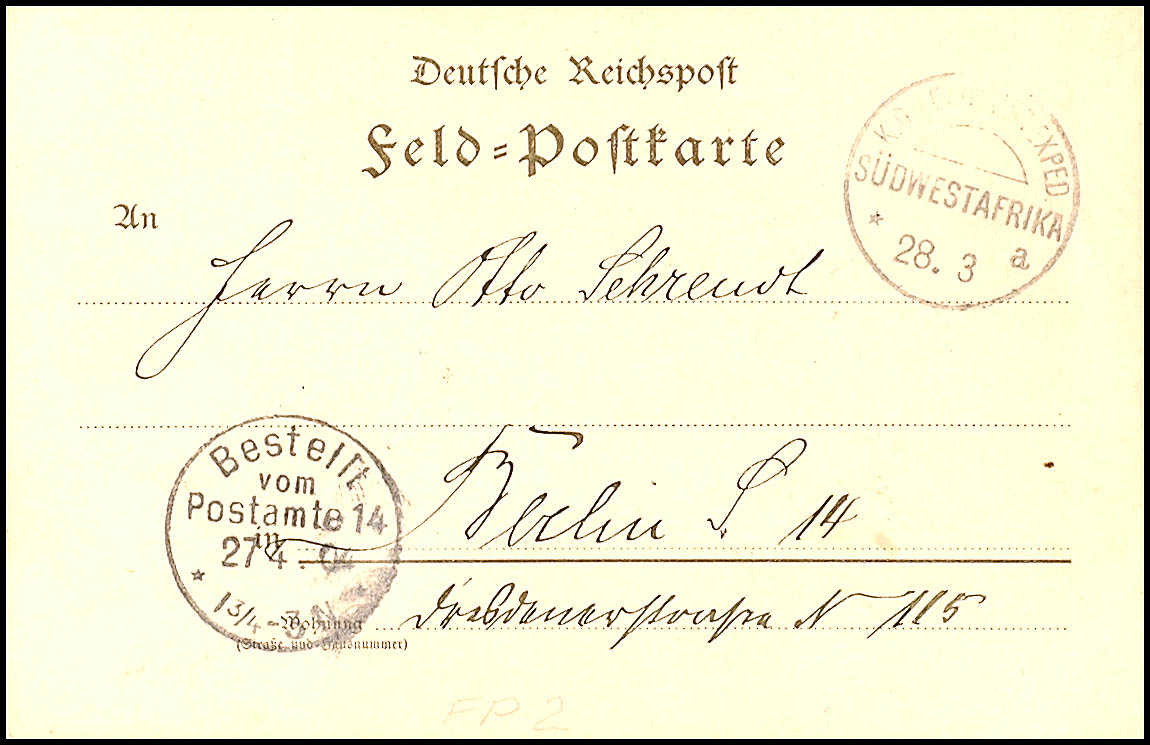 Deutsche Reichspost
Feld-Postkarte
EXPED
SÜDWESTAFRIKA
* 28. 3 a
An
Herrn Otto Schrendt
Bestellt
vom
Postamte 14
27 4. 04
* 1 3/4 - 3 N *
in Berlin S. 14
Wohnung Dresdenerstrasse N 115
(Straße und Hausnummer)
FP 2